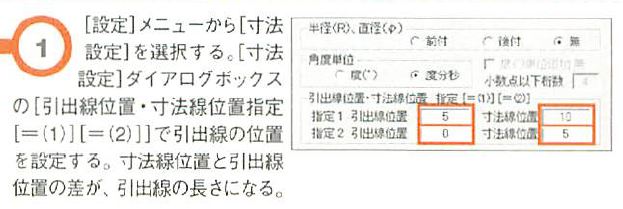 1
[設定]メニューから[寸法
設定]を選択する。[寸法
設定]ダイアログボックス
の[引出線位置・寸法線位置指定
[=(1)][=(2)]]で引出線の位置
を設定する。寸法線位置と引出線
位置の差が、引出線の長さになる。
半径(R)、直径(φ)
前付 後付 無
角度単位
度(°) 度分秒 小数点以下桁数 4
引出線位置・寸法線位置 指定 [=(1)] [=(2)]
指定1 引出線位置 5 寸法線位置 10
指定2 引出線位置 0 寸法線位置 5